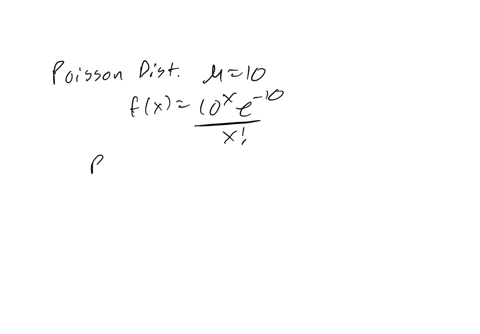 Poisson Dist. μ=10
f(x)= 10^x e^-10 / x!
P